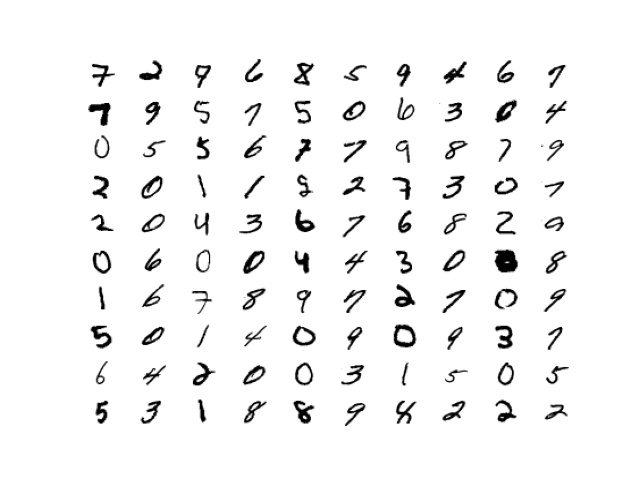 7 2 9 6 8 5 9 4 6 7
7 9 5 7 5 0 6 3 0 4
0 5 5 6 7 7 9 8 7 9
2 0 1 1 9 2 7 3 0 7
2 0 4 3 6 7 6 8 2 9
0 6 0 0 4 4 3 0 8 8
1 6 7 8 9 7 2 7 0 9
5 0 1 4 0 9 0 9 3 7
6 4 2 0 0 3 1 5 0 5
5 3 1 8 8 9 8 2 2 2